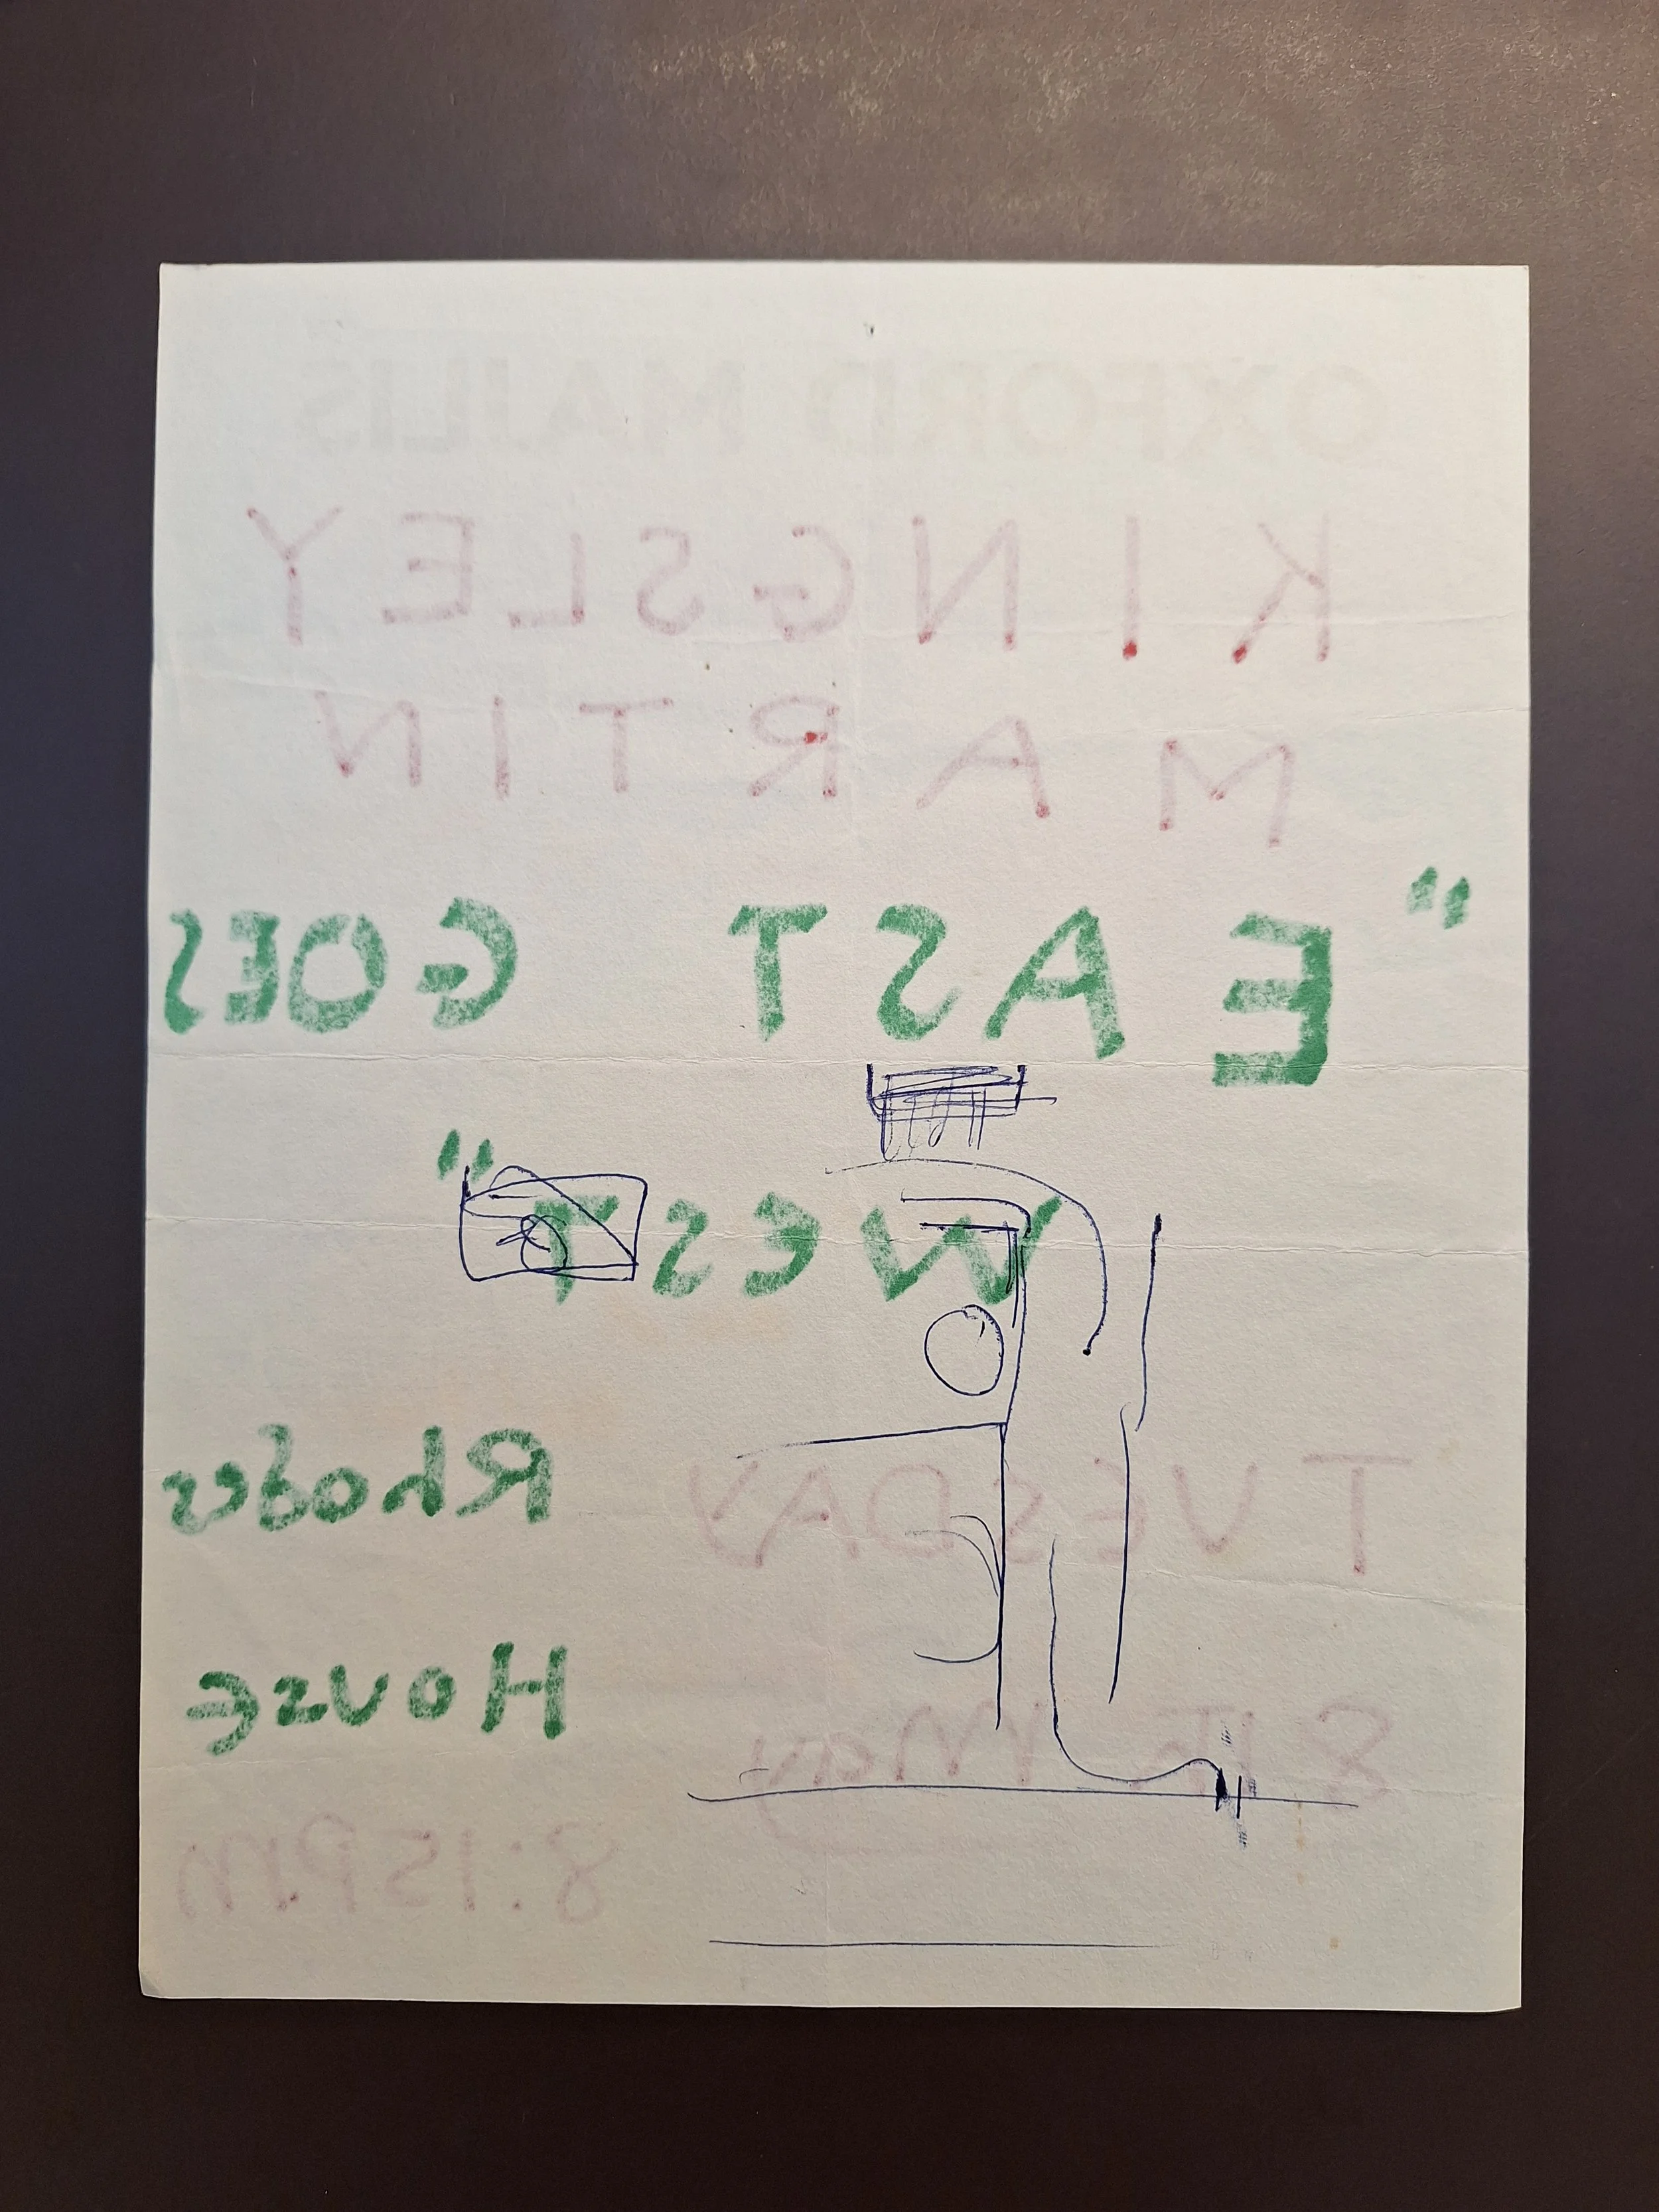 OXFORD MAJLIS
KINGSLEY
MARTIN
"EAST GOES
WEST"
TUESDAY Rhodes
8th May House
8:15PM